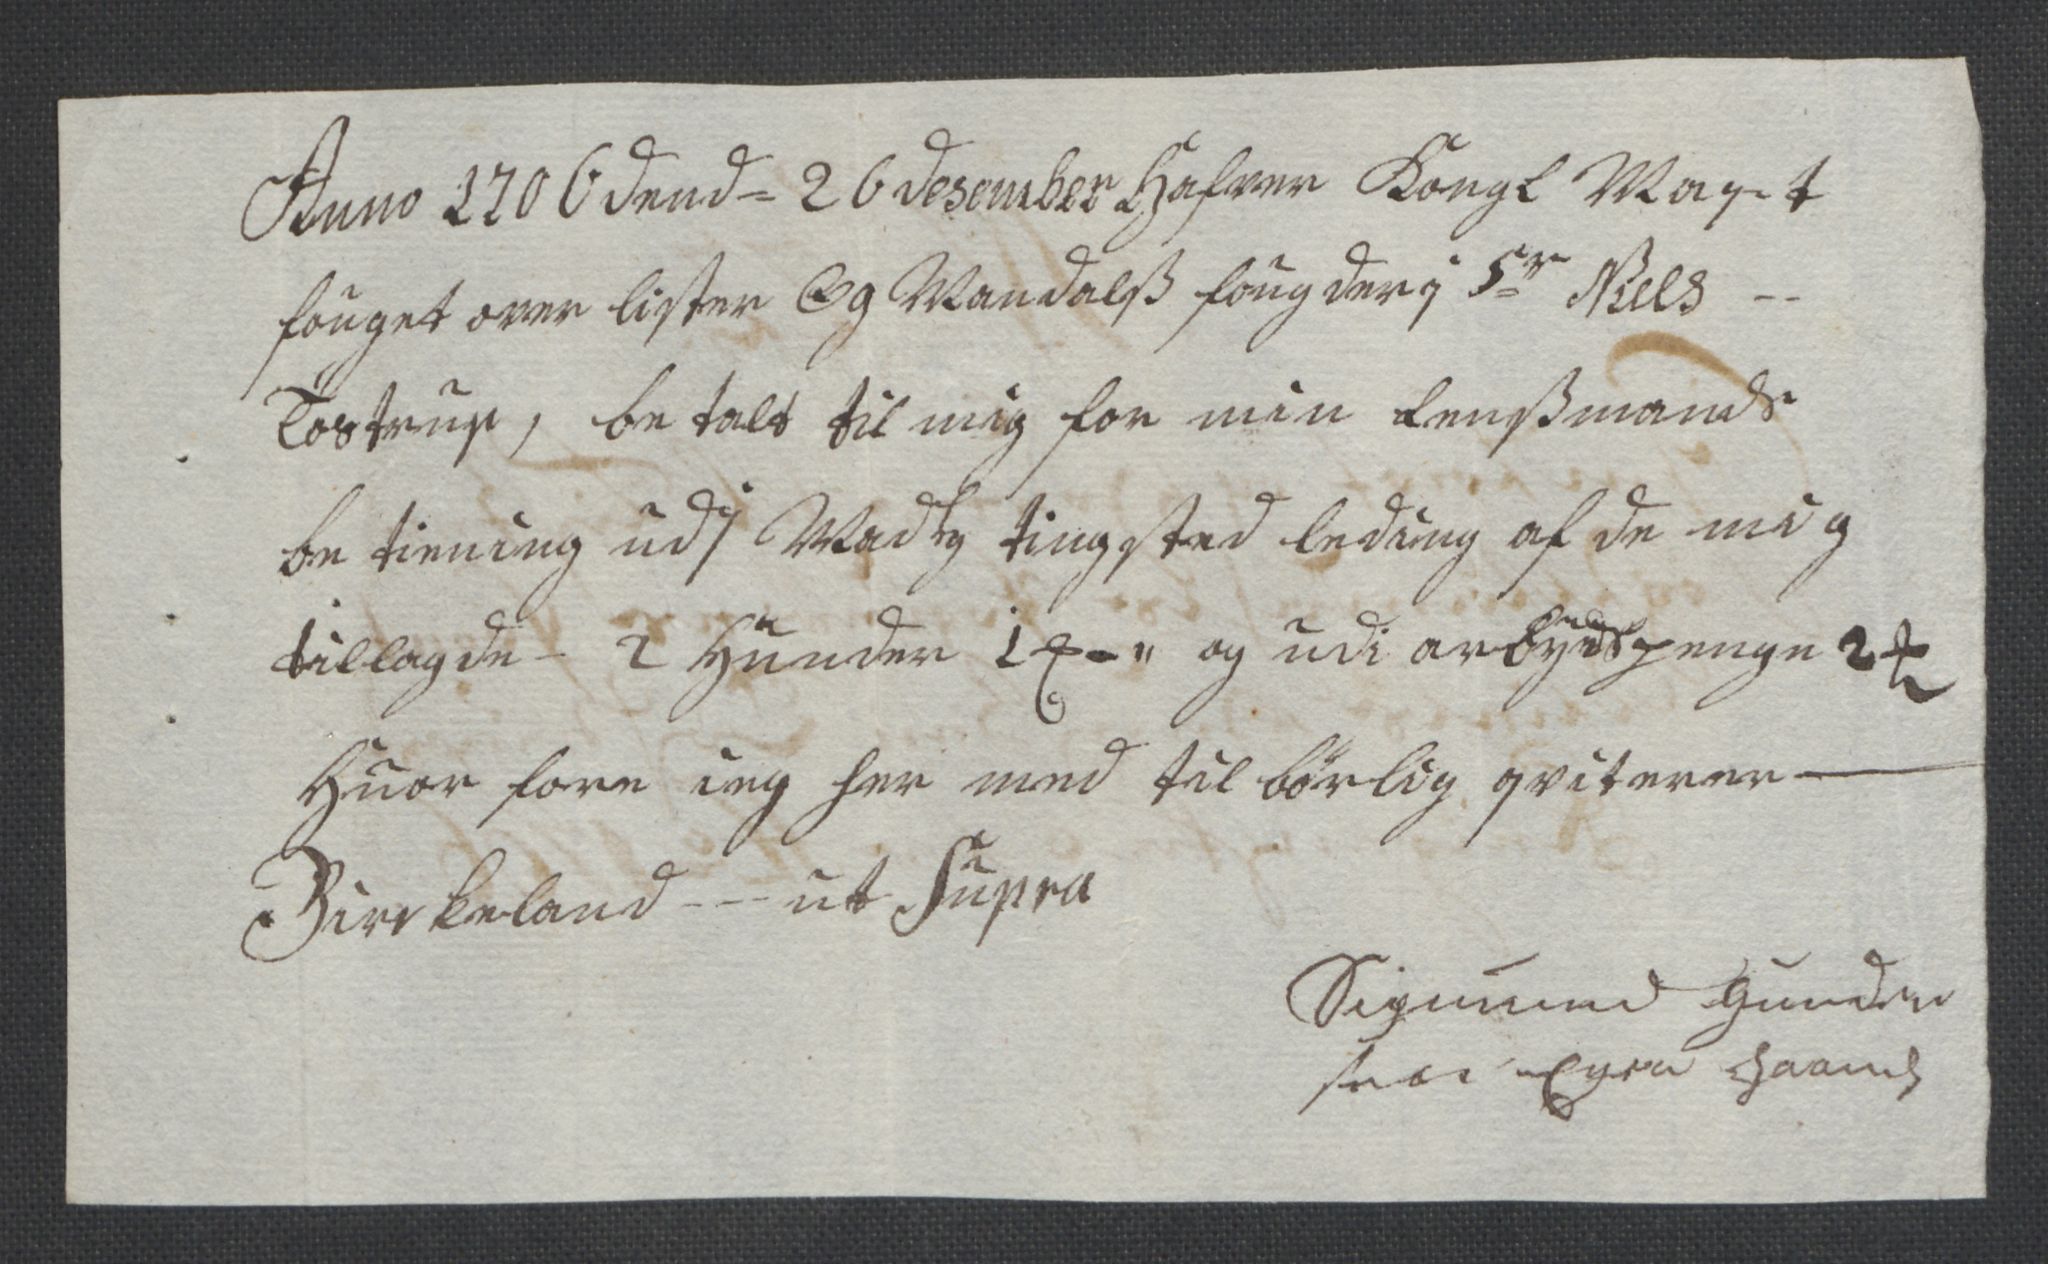 Anno 1706 dend = 26 desember Hafver Kongl May-t
fouget over lister Og Mandalß fougderj Sr Niels --
Tostrup, be talt til mig for min Lenßmands
be tiening udj tingsted leding af de mig
tillagde - 2 Hunder og udi arbydspenge 2
Huor fore ieg her med til børlig qviterer —
Birckeland --- ut Supra
Sigmund Gunder
søn Egen Haand